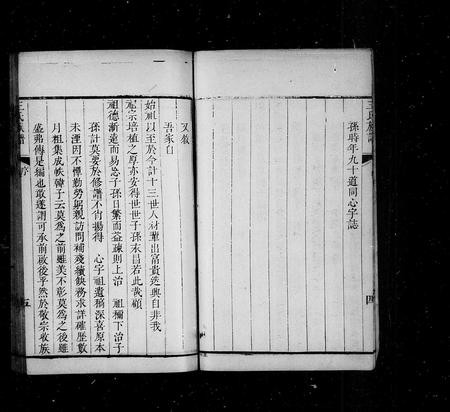 王氏族譜
四
孫時年九十道同心字誌
又敘
吾家自
始祖以至於今計十三世人材輩出富貴迭興自非我
祖宗培植之厚亦安得世世子孫永昌若此哉顧
祖德漸遠而易忘子孫日繁而益疎則上治 祖禰下治子
孫計莫要於修譜不肖揚得 心字祖遺稿深喜原本
未湮因不憚勤勞躬親訪問補殘續缺務求詳確歷數
月粗集成帙韓子云莫為之前雖美不彰莫為之後雖
盛弗傳是編也敢遂謂可承前啟後乎然於敬宗收族
王氏族譜
序
五